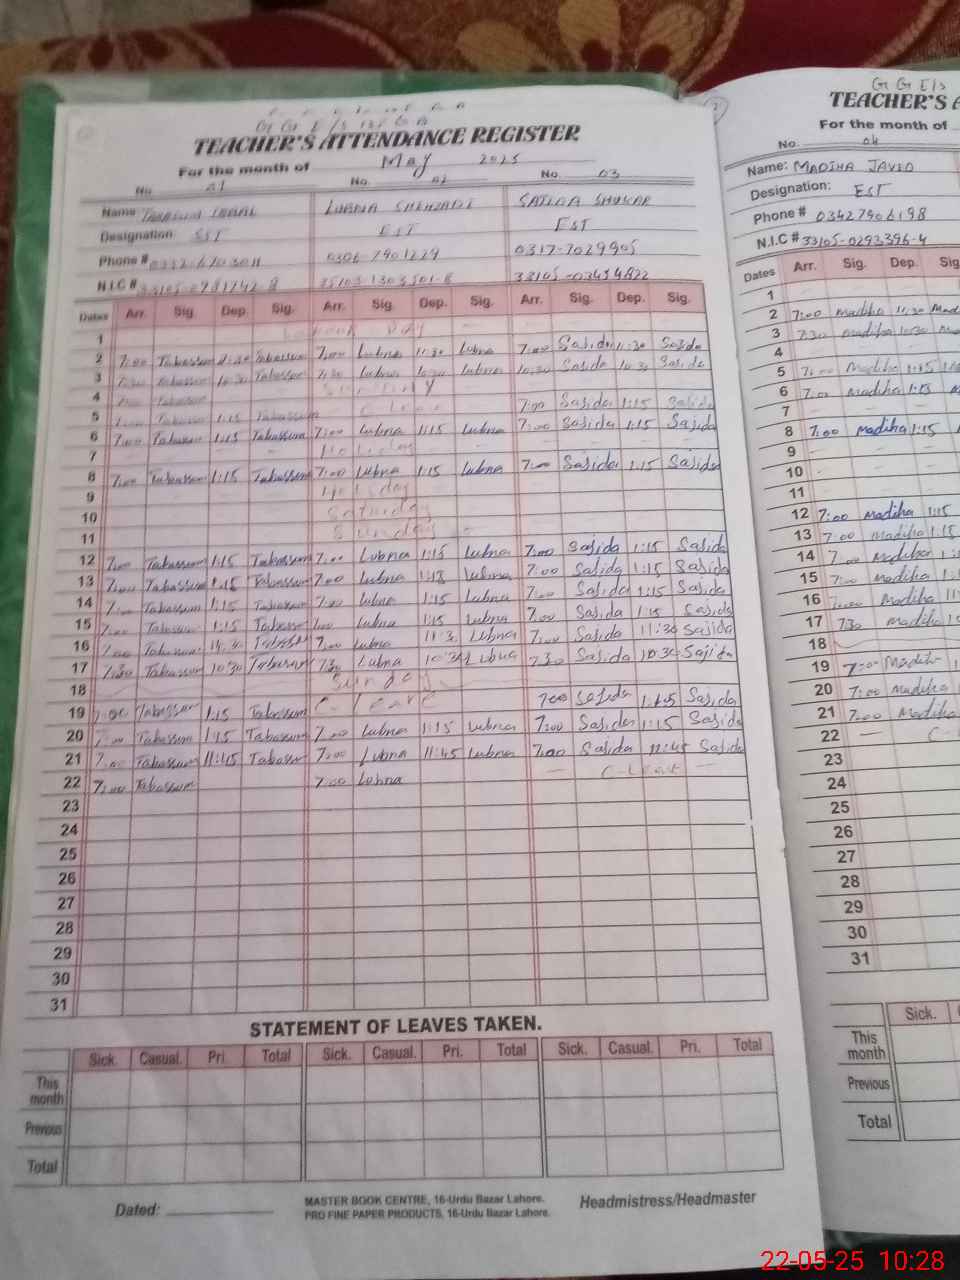 TEACHER'S ATTENDANCE REGISTER
For the month of May 2025
No. 01 No. 02 No. 03
Name LUBNA SHEHZADI SAJIDA SHUKAR
Designation EST EST EST
Phone # 0306-7901229 0317-7029905
N.I.C #
Dates Arr. Sig. Dep. Sig. Arr. Sig. Dep. Sig. Arr. Sig. Dep. Sig.
1 Labour Day
2 7:00 Tabassum 11:30 Tabassum 7:00 Lubna 11:30 Lubna 7:00 Sajida 11:30 Sajida
3 7:30 Tabassum 10:30 Tabassum 7:30 Lubna 10:30 Lubna 10:30 Sajida 10:30 Sajida
4 Sunday
5 Tabassum 1:15 Tabassum C Leave 7:00 Sajida 1:15 Sajida
6 7:00 Tabassum 1:15 Tabassum 7:00 Lubna 1:15 Lubna 7:00 Sajida 1:15 Sajida
7 Holiday
8 7:00 Tabassum 1:15 Tabassum 7:00 Lubna 1:15 Lubna 7:00 Sajida 1:15 Sajida
9 Holiday
10 Saturday
11 Sunday
12 7:00 Tabassum 1:15 Tabassum 7:00 Lubna 1:15 Lubna 7:00 Sajida 1:15 Sajida
13 7:00 Tabassum 1:15 Tabassum 7:00 Lubna 1:15 Lubna 7:00 Sajida 1:15 Sajida
14 7:00 Tabassum 1:15 Tabassum 7:00 Lubna 1:15 Lubna 7:00 Sajida 1:15 Sajida
15 7:00 Tabassum 1:15 Tabassum 7:00 Lubna 1:15 Lubna 7:00 Sajida 1:15 Sajida
16 7:00 Tabassum 11:30 Tabassum 7:00 Lubna 11:30 Lubna 7:00 Sajida 11:30 Sajida
17 7:30 Tabassum 10:30 Tabassum 7:30 Lubna 10:30 Lubna 7:30 Sajida 10:30 Sajida
18 Sunday
19 7:00 Tabassum 1:15 Tabassum C-Leave 7:00 Sajida Sajida
20 7:00 Tabassum 1:15 Tabassum 7:00 Lubna 1:15 Lubna 7:00 Sajida 1:15 Sajida
21 7:00 Tabassum 11:45 Tabassum 7:00 Lubna 11:45 Lubna 7:00 Sajida 11:45 Sajida
22 7:00 Tabassum 7:00 Lubna — C-Leave —
23
24
25
26
27
28
29
30
31
STATEMENT OF LEAVES TAKEN.
Sick. Casual. Pri. Total Sick. Casual. Pri. Total Sick. Casual. Pri. Total
This month
Previous
Total
Dated:
MASTER BOOK CENTRE, 16-Urdu Bazar Lahore.
PRO FINE PAPER PRODUCTS, 16-Urdu Bazar Lahore.
Headmistress/Headmaster
G G E/S
TEACHER'S A
For the month of
No. 04
Name: MADIHA JAVED
Designation: EST
Phone # 03427906198
N.I.C # 33105-0293396-4
Dates Arr. Sig. Dep. Sig
1
2 7:00 Madiha 11:30 Mad
3 7:30 Madiha 10:30 Mad
4
5 7:00 Madiha 1:15
6 7:00 Madiha 1:15
7
8 7:00 Madiha 1:15
9
10
11
12 7:00 Madiha 1:15
13 7:00 Madiha 1:15
14 7:00 Madiha
15 7:00 Madiha
16 7:00 Madiha
17 7:30 Madiha
18
19 7:00 Madiha
20 7:00 Madiha
21 7:00 Madiha
22 — C-
23
24
25
26
27
28
29
30
31
Sick.
This month
Previous
Total
22-05-25 10:28